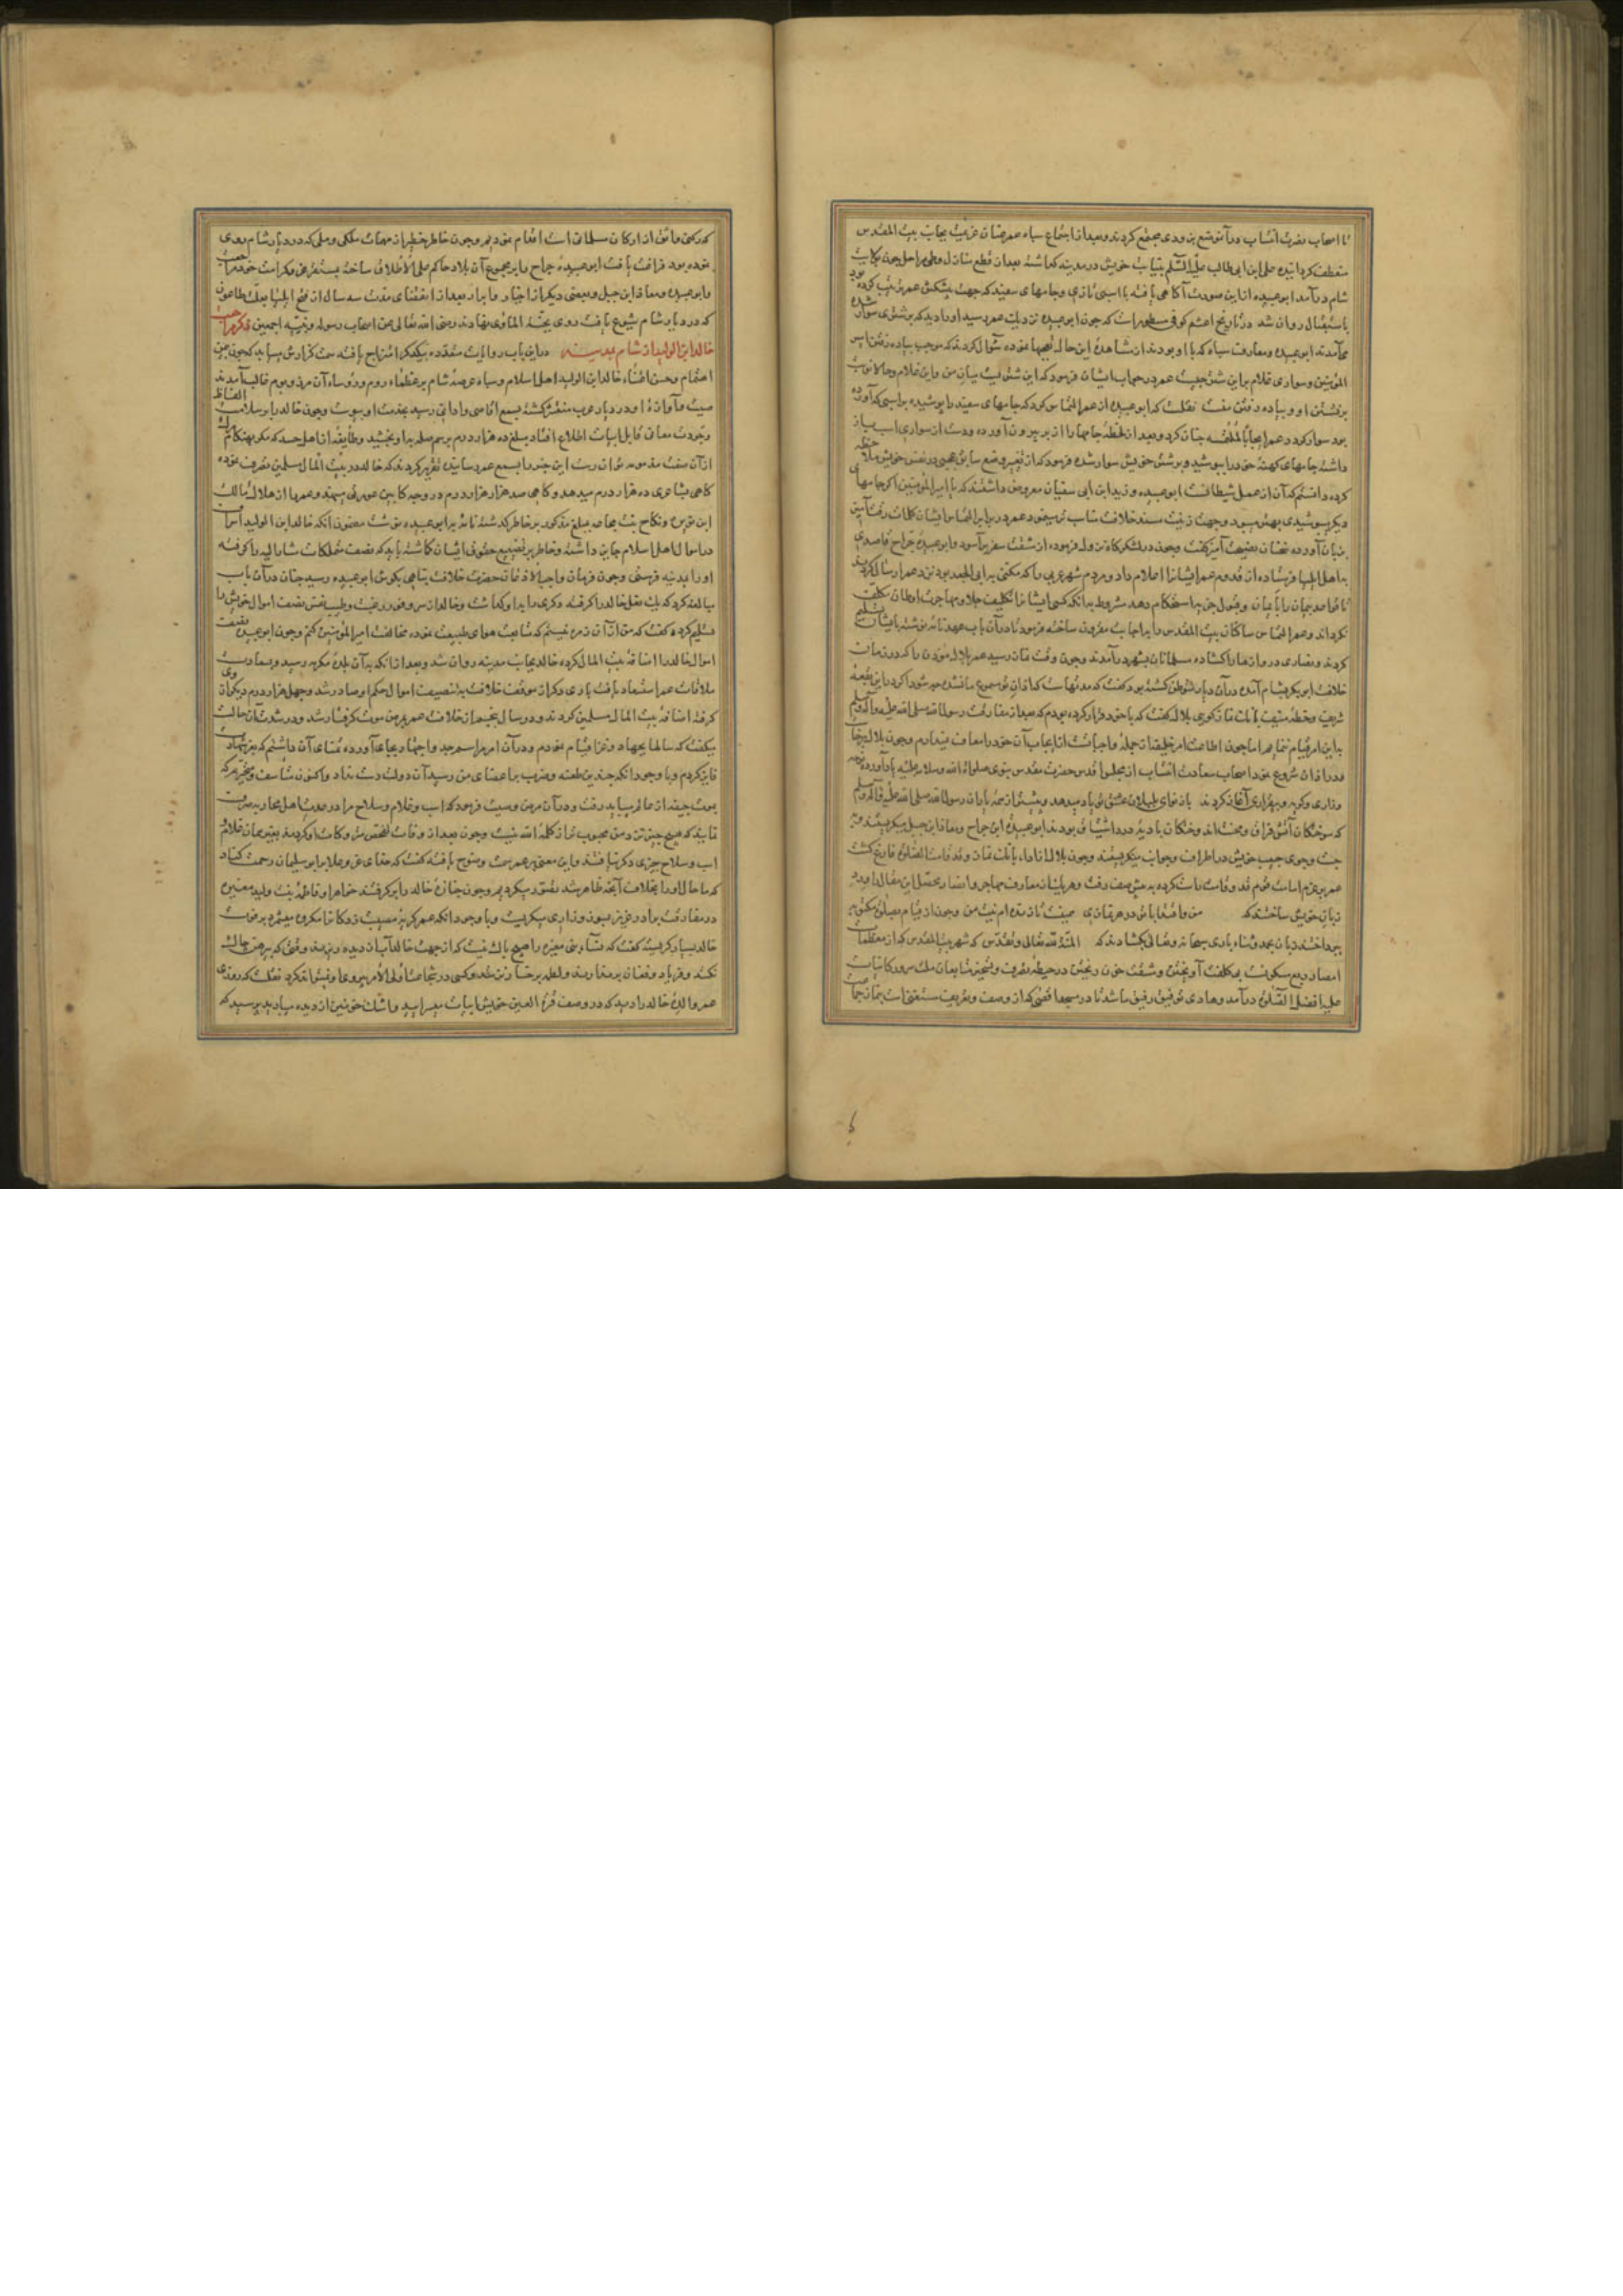 تا اصحاب نصرت انتساب در آن موضع بزودی مجتمع کردند و بعد از اجتماع سپاه عمر عنان عزیمت بجانب بیت المقدس
منعطف کردانیده علی ابن ابی طالب علیه السلم بنیابت خویش در مدینه کماشته بعد از قطع منازل و طی مراحل چون بکابیت
شام درآمد ابوعبیده ازاین صورت آکاهی یافته با اسبی تازی و جامهای سفید که جهت پیشکش عمر ترتیب کرده بود
باستقبال روان شد در تاریخ اعثم کوفی مسطور است که چون ابوعبیده نزدیک عمر رسید او را دید که بر شتری سوار شده
می‌آمدند ابوعبیده و معارف سپاه که با او بودند از مشاهدهٔ این حال تعجبها نموده سؤال کردند که موجب پیاده رفتن امیر
المؤمنین و سواری غلام بر این شتر چیست عمر در جواب ایشان فرمود که این شتر میان من و این غلام و حالا نوبت
برنشستن او و پیاده رفتن منست نقلست که ابوعبیده از عمر التماس کرد که جامهای سفید را پوشیده بر اسبی که آورده
بود سوار کردد و عمر چنان کرد و بعد از لحظهٔ جامها را از بر بیرون آورده و دست از سواری اسب باز
داشته جامهای کهنهٔ خود را بپوشید و بر شتر خویش سوار شده فرمود که از تغییر وضع سابق عجبی در نفس خویش ملاحظه
کرده دانستم که آن از عمل شیطانست ابوعبیده و زید ابن ابی سفیان معروض داشتند که یا امیرالمؤمنین اکر جامهای
دیکر بپوشیدی بهتر میبود و جهت زینت مسند خلافت مناسب‌تر مینمود عمر در برابر التماس ایشان کلمات رقت آمیز
بزبان آورده سخنان نصیحت آمیز کفت و چون در لشکرکاه نزول فرموده از مشقت سفر برآسود و ابوعبیده جراح قاصدی
به اهل ایلیا فرستاده از قدوم عمر ایشانرا اعلام داد و مردم شهر عربی را که مکنی به ابی الجعد بود نزد عمر ارسال کردند
تا قواعد پیمان را بایمان و قبول جزیه استحکام دهد مشروط بدانکه کسی ایشانرا تکلیف جلا و مهاجرت اوطان مکلف
نکرداند و عمر التماس ساکنان بیت المقدس را به اجابت مقرون ساخته فرمود تا در آن باب عهدنامه نوشته بایشان تسلیم
کردند و نصاری دروازها را کشاده مسلمانان بشهر درآمدند و چون وقت نماز رسید عمر بلال مؤذن را که در زمان
خلافت ابوبکر بشام آمده در آن دیار متوطن کشته بود کفت که مدتهاست که اذان تو مسموع ما نشده چه شود اکر در این بقعهٔ
شریف و خطهٔ منیف بانک نماز کویی بلال کفت که با خود قرار کرده بودم که بعد از مفارقت رسول الله صلی الله علیه و آله و سلم
به این امر قیام ننمایم اما چون اطاعت امر خلیفه از جمله واجباتست
و در اذان شروع نمود اصحاب سعادت انتساب از مجلس اقدس حضرت مقدس نبوی صلوات الله و سلامه علیه یاد آورده نوحه
و زاری و کریه و بیقراری آغاز کردند
که سوختکان آتش فراق و محنت‌اند و خستکان بادیهٔ درد اشتیاق بودند ابوعبیده ابن جراح و معاذ ابن جبل میکریستند و
چپ و جوی حبیب خویش در اطراف و جوانب مینکریستند و چون بلال از اداء بانک نماز و قد قامت الصلوة فارغ کشت
عمر بعزم امامت قوم قد و قامت راست کرده به پیش صف رفت و هر یک از معارف مهاجر و انصار محصل این مقال را ورد
زبان خویش ساختند که
پرداختند زبان بحمد و ثناء باری سبحانه و تعالی بکشادند که المنة لله تعالی و تقدس که شهر بیت المقدس که از معظمات
امصار ربع مسکونست بی‌کلفت آویختن و مشقت خون ریختن در حیطهٔ تصرف و تسخیر متابعان ملت سرور کاینات
علیه افضل الصلوة درآمد و هادی توفیق رفیق ما شد تا در مسجد اقصی که از وصف و تعریف مستغنیست بنماز جماعت
که رکنی واثق از ارکان مسلمانی است اقدام نمودیم و چون خاطر خطیر از مهمات ملکی و ملی که در دیار شام روی
نموده بود فراغت یافت ابوعبیدهٔ جراح را بر مجموع آن بلاد حاکم علی الاطلاق ساخته بمستقر عز و کرامت خود مراجعت
و ابوعبیده و معاذ ابن جبل و بعضی دیکر از اخیار و ابرار بعد از انقضای مدت سه سال از فتح ایلیا بعلت طاعون
که در دیار شام شیوع یافت روی بجنة الماوی نهادند رضی الله تعالی عن اصحاب رسوله و نبیه اجمعین ذکر مراجعت
خالد ابن الولید از شام بمدینه در این باب روایات متعدده بیکدیکر امتزاج یافته سمت کزارش میپابد که چون بیمن
اهتمام و حسن اعتناء خالد ابن الولید اهل اسلام و سپاه عرصهٔ شام بر عظماء روم و رؤساء آن مرز و بوم غالب آمدند
صیت و آوازهٔ او در دیار عرب منتشر کشته بسمع اقاصی و ادانی رسید
وجودت معانی قابل ابیات اطلاع افتاد مبلغ ده هزار درم برسم صله بداو بخشید و طایفهٔ از اهل حسد که مکر بهنکام
ازآن صفت مذمومه نتوان رست این خبر را بسمع عمر رسانیدند تقریر کردند که خالد در بیت المال مسلمین تصرف نموده
کاهی بشاعری ده هزار درم میدهد و کاهی صد هزار هزار درم در وجه کابین عورتی مینهد و عمر را از هلاک مالک
ابن نویره و نکاح بنت مجاعه بمبلغ مذکور بر خاطر کذشته نامهٔ به ابوعبیده نوشت مضمون آنکه خالد ابن الولید اسراف
در اموال اهل اسلام جایز داشته و خاطر بر تضییع حقوق ایشان کماشته باید که نصف متملکات مشارالیه را کرفته
او را بمدینه فرستی و چون فرمان واجب الاذعان حضرت خلافت پناهی بکوش ابوعبیده رسید چنان در آن باب
مبالغه کرد که یک نعل خالد را کرفته و دیکری را بداو کذاشت و خالد از سر وفور رغبت و طیب نفس نصف اموال خویش را
تسلیم کرده کفت که من از آن زمره نیستم که متابعت هوای طبیعت نموده مخالفت امیرالمؤمنین کنم و چون ابوعبیده نصف
اموال خالد را اضافه بیت المال کرده خالد بجانب مدینه روان شد و بعد از آنکه به آن بلدهٔ مکرمه رسید و بسعادت
ملاقات عمر استسعاد یافت باری دیکر از موقف خلافت به تنصیف اموال حکم او صادر شد و چهل هزار درم دیکر از وی
کرفته اضافه بیت المال مسلمین کردند و در سال پنجم از خلافت عمر بمرض موت کرفتار شد و در شدت آن حالت
میکفت که سالها بجهاد و غزا قیام نمودم و در آن امر مراسم جد و اجتهاد بجای آورده تمنای آن داشتم که بعز شهادت
فایز کردم و با وجود آنکه چندین طعنه و ضرب بر اعضای من رسید آن دولت دست نداد و اکنون متاسف و متحیرم که
بموت حیفه از عالم میباید رفت و در آن مرض وصیت فرمود که اسب و غلام و سلاح مرا در وجه اهل محاربه صرف
نمایند که هیچ چیز نزد من محبوب‌تر از کلمهٔ الله نیست و چون بعد از وفات تفحص متروکات او کردند بغیر همان غلام
اسب و سلاح چیزی دیکر نیافتند و این معنی بر عمر سمت وضوح یافته کفت که خدای عز و علا بر ابو سلیمان رحمت کناد
که ما حال او را بخلاف آنچه ظاهر شد تصور میکردیم و چون جنازهٔ خالد را برکرفتند خواهر او فاطمه بنت ولید مغیره
در مفارقت برادر عزیز میمون و زاری میکریست و با وجود آنکه عمر کریهٔ مصیبت زدکانرا مکروه میشمرد بر وفات
خالد بسیار کریسته کفت که نساء بنی مغیره را هیچ باک نیست که از جهت خالد آب از دیده ریزند وقتی که پیرهن چاک
نکنند و فریاد و فغان برندارند و لطمه بر رخسار نزنند
عمر والدهٔ خالد را دید که در وصف قرة العین خویش ابیات میسرایید و اشک خونین از دیده میبارید پرسید که